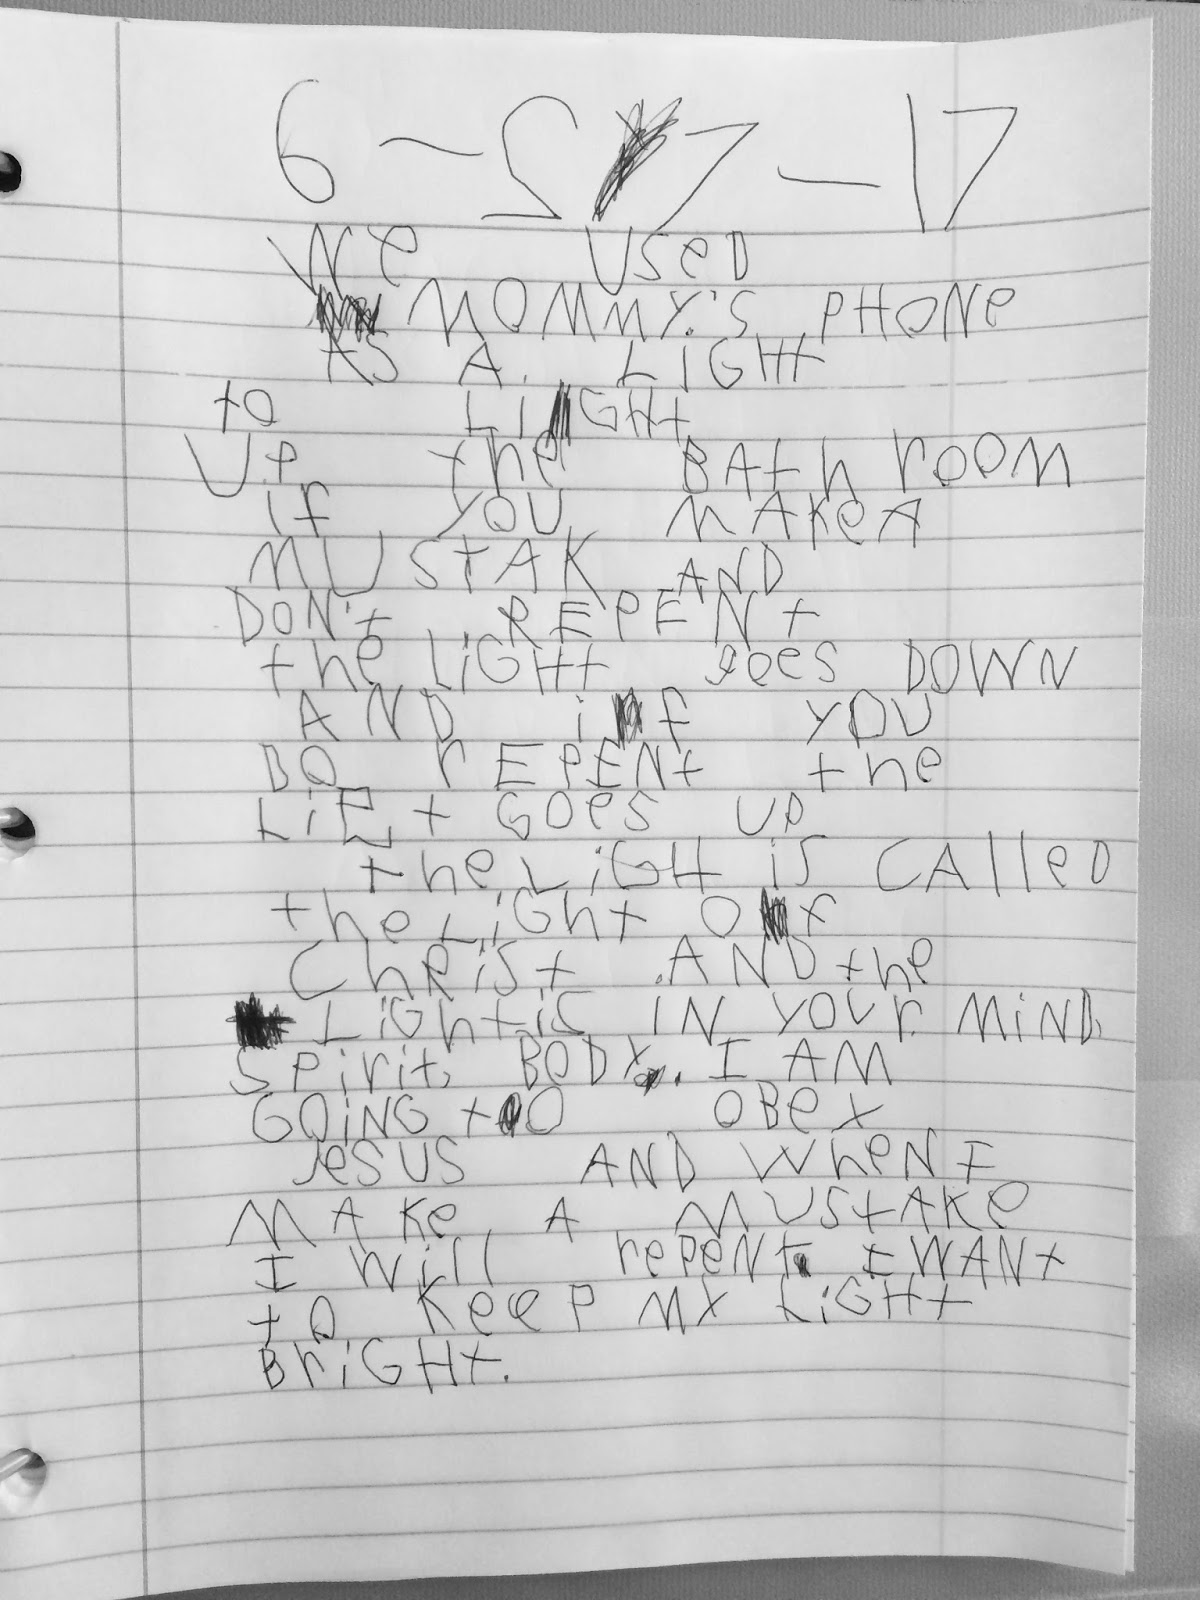 6-27-17
We UseD
MOMMY'S PHONe
AS A LiGHt
to LiGHt
UP the BAth rOOM
if YOU MAKe A
MUStAK AND
DON't REPENt
the LiGHt goes DOWN
AND if YOU
DO rEPENt the
LiEt GOes UP
the LiGH is CAlleD
the LiGht Of
ChRiSt AND the
Light is IN YOUr MiND,
SPirit, BODY. I AM
GOiNG tO OBeY
JeSUS AND WheN I
MAKe A MUStAKe
I Will rePeNt. I WANt
tO KeeP MY LiGHt
BriGHt.